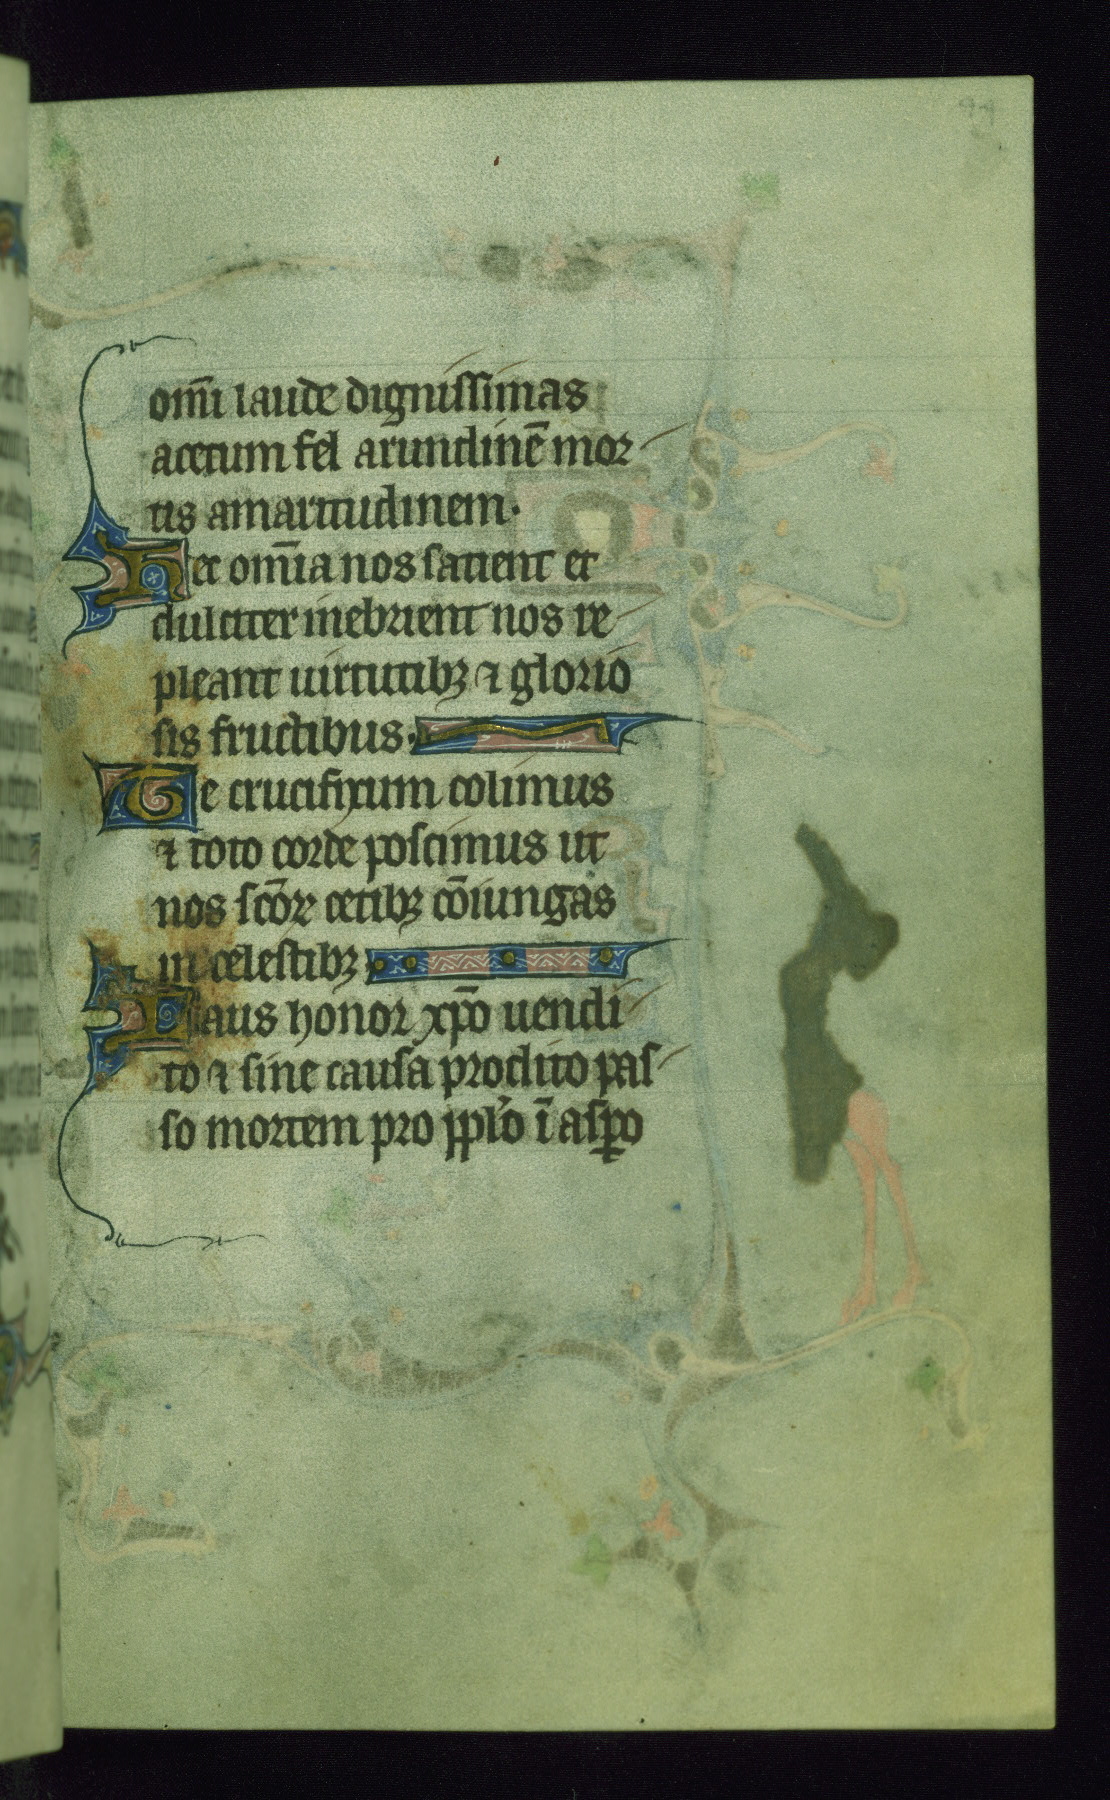 om̄i laude dignissimas
acetum fel arundinē mor
tis amaritudinem.
Hec om̄ia nos satient et
dulciter inebrient nos re
pleant uirtutibꝫ ⁊ glorio
sis fructibus.
Te crucifixum colimus
⁊ toto corde poscimus ut
nos sc̄oꝝ cetibꝫ cōiungas
in celestibꝫ
Laus honor xp̄o uendi
to ⁊ sine causa prodito pas
so mortem pro ppl'o ī aspo